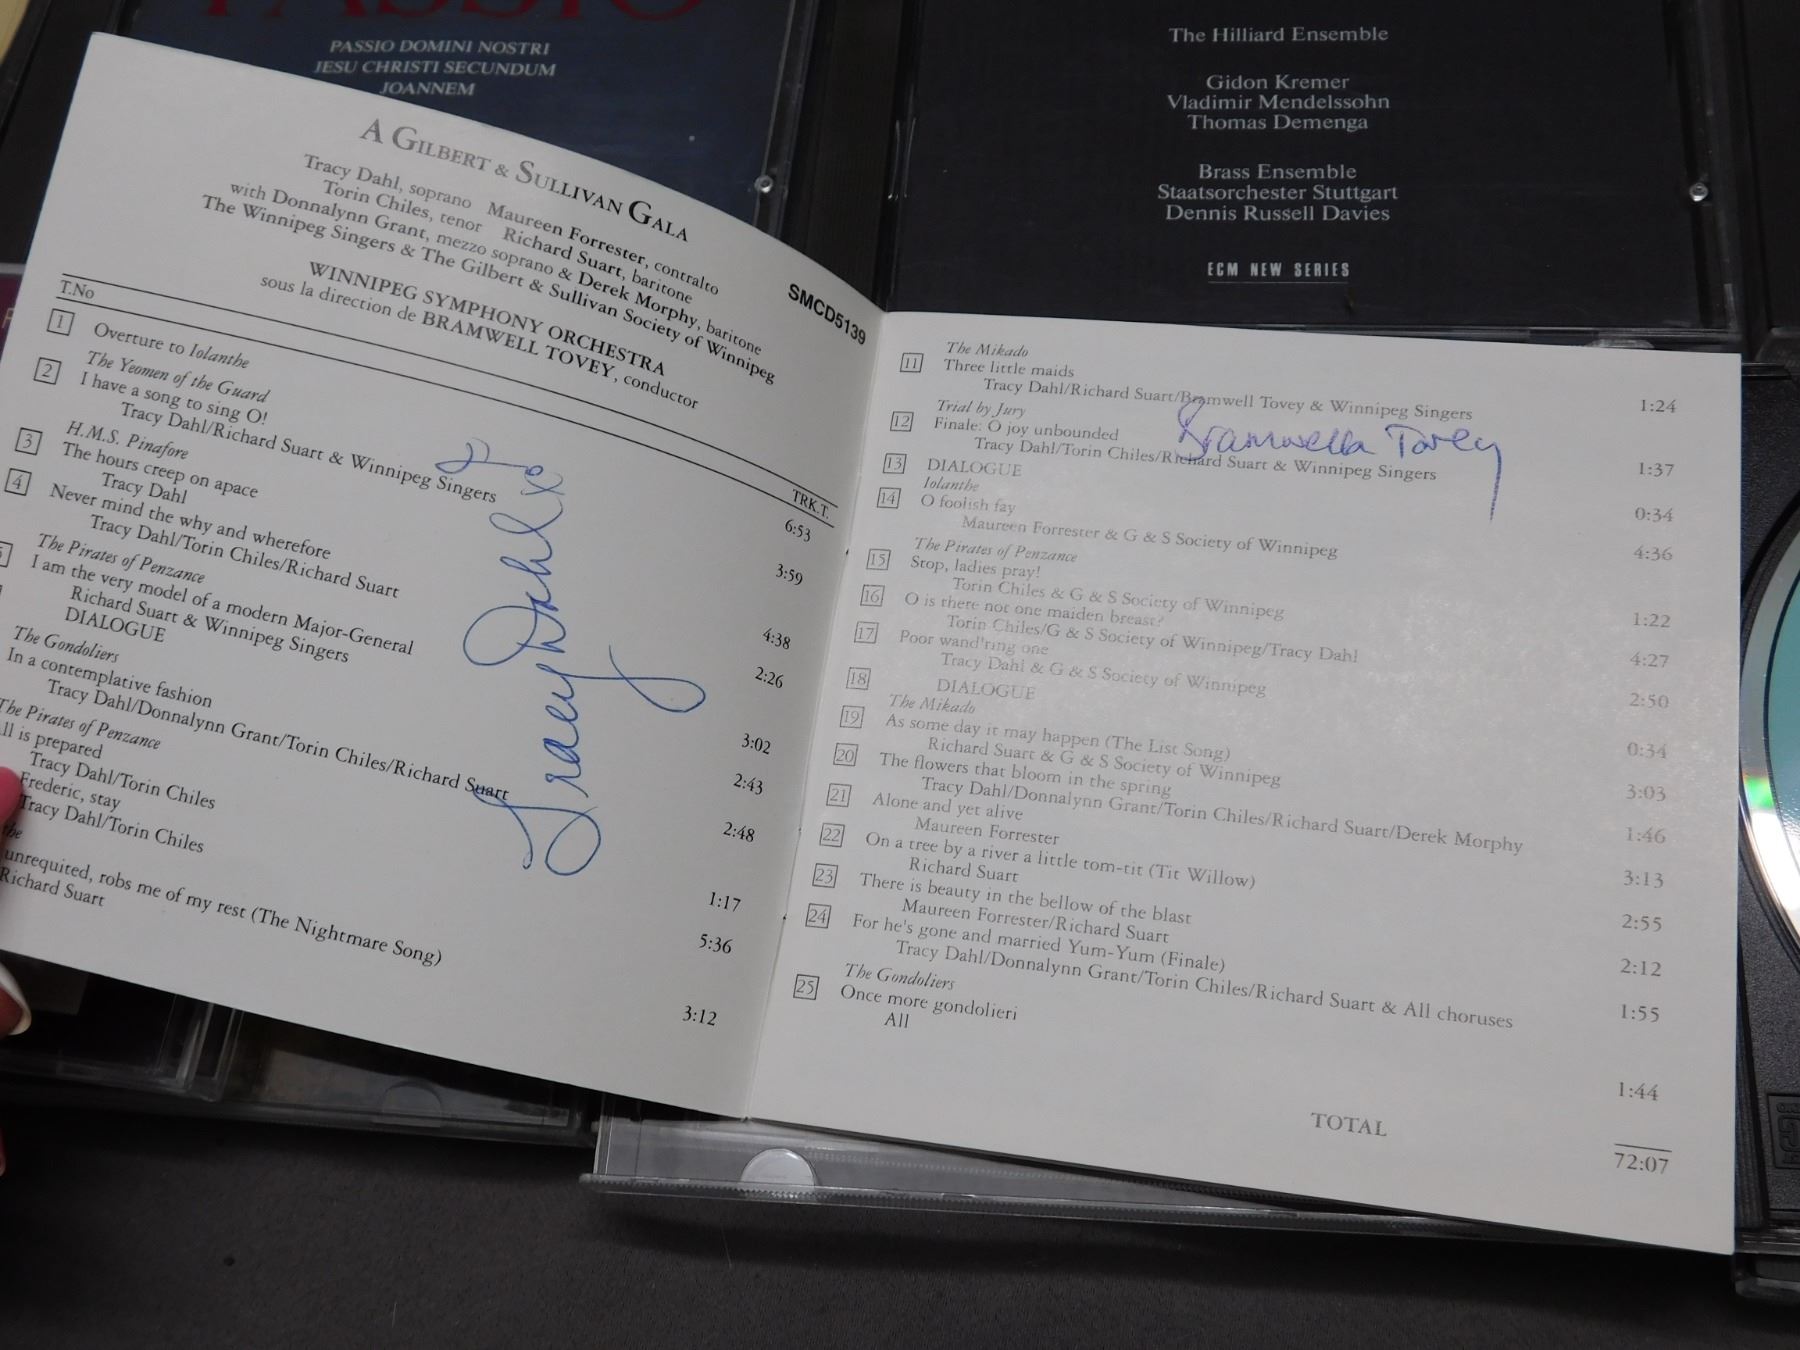 PASSIO
PASSIO DOMINI NOSTRI
JESU CHRISTI SECUNDUM
JOANNEM
The Hilliard Ensemble
Gidon Kremer
Vladimir Mendelssohn
Thomas Demenga
Brass Ensemble
Staatsorchester Stuttgart
Dennis Russell Davies
ECM NEW SERIES
A GILBERT & SULLIVAN GALA
Tracy Dahl, soprano Maureen Forrester, contralto
Torin Chiles, tenor Richard Suart, baritone
with Donnalynn Grant, mezzo soprano & Derek Morphy, baritone
The Winnipeg Singers & The Gilbert & Sullivan Society of Winnipeg
WINNIPEG SYMPHONY ORCHESTRA
sous la direction de BRAMWELL TOVEY, conductor
SMCD5139
T.No TRK.T.
1 Overture to Iolanthe 6:53
The Yeomen of the Guard
2 I have a song to sing O! 3:59
Tracy Dahl/Richard Suart & Winnipeg Singers
H.M.S. Pinafore
3 The hours creep on apace 4:38
Tracy Dahl
4 Never mind the why and wherefore 2:26
Tracy Dahl/Torin Chiles/Richard Suart
The Pirates of Penzance
I am the very model of a modern Major-General 3:02
Richard Suart & Winnipeg Singers
DIALOGUE 2:43
The Gondoliers
In a contemplative fashion 2:48
Tracy Dahl/Donnalynn Grant/Torin Chiles/Richard Suart
The Pirates of Penzance
All is prepared 1:17
Tracy Dahl/Torin Chiles
Frederic, stay 5:36
Tracy Dahl/Torin Chiles
unrequited, robs me of my rest (The Nightmare Song) 3:12
Richard Suart
Tracy Dahl xo
The Mikado
11 Three little maids 1:24
Tracy Dahl/Richard Suart/Bramwell Tovey & Winnipeg Singers
Trial by Jury
12 Finale: O joy unbounded 1:37
Tracy Dahl/Torin Chiles/Richard Suart & Winnipeg Singers
Bramwell Tovey
13 DIALOGUE 0:34
Iolanthe
14 O foolish fay 4:36
Maureen Forrester & G & S Society of Winnipeg
The Pirates of Penzance
15 Stop, ladies pray! 1:22
Torin Chiles & G & S Society of Winnipeg
16 O is there not one maiden breast? 4:27
Torin Chiles/G & S Society of Winnipeg/Tracy Dahl
17 Poor wand'ring one 2:50
Tracy Dahl & G & S Society of Winnipeg
18 DIALOGUE 0:34
The Mikado
19 As some day it may happen (The List Song) 3:03
Richard Suart & G & S Society of Winnipeg
20 The flowers that bloom in the spring 1:46
Tracy Dahl/Donnalynn Grant/Torin Chiles/Richard Suart/Derek Morphy
21 Alone and yet alive 3:13
Maureen Forrester
22 On a tree by a river a little tom-tit (Tit Willow) 2:55
Richard Suart
23 There is beauty in the bellow of the blast 2:12
Maureen Forrester/Richard Suart
24 For he's gone and married Yum-Yum (Finale) 1:55
Tracy Dahl/Donnalynn Grant/Torin Chiles/Richard Suart & All choruses
The Gondoliers
25 Once more gondolieri 1:44
All
TOTAL 72:07